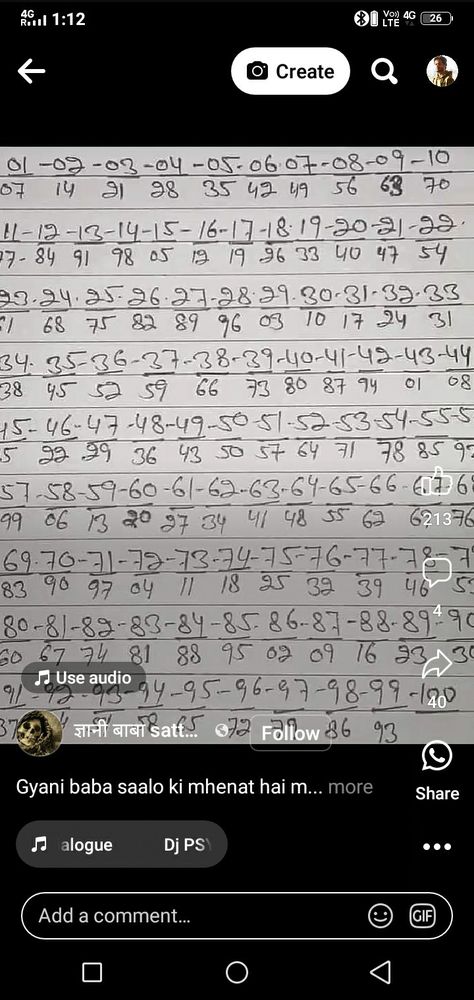 4G 1:12 Vo)) LTE 4G 26
Create
01 -02 -03 -04 -05-06-07-08-09-10
07 14 21 28 35 42 49 56 63 70
11-12-13-14-15-16-17-18-19-20-21-22
77-84 91 98 05 12 19 26 33 40 47 54
23-24-25-26-27-28-29-30-31-32-33
61 68 75 82 89 96 03 10 17 24 31
34-35-36-37-38-39-40-41-42-43-44
38 45 52 59 66 73 80 87 94 01 08
45-46-47-48-49-50-51-52-53-54-55-5
5 22 29 36 43 50 57 64 71 78 85 92
57-58-59-60-61-62-63-64-65-66-67 68
99 06 13 20 27 34 41 48 55 62 69 76
213
69-70-71-72-73-74-75-76-77-78-7
83 90 97 04 11 18 25 32 39 46 5
4
80-81-82-83-84-85-86-87-88-89-90
60 67 74 81 88 95 02 09 16 23 30
Use audio
40
91 92 93-94-95-96-97-98-99-100
37 58 65 72 79 86 93
ज्ञानी बाबा satt... Follow
Gyani baba saalo ki mhenat hai m... more
Share
alogue Dj PS
Add a comment... GIF